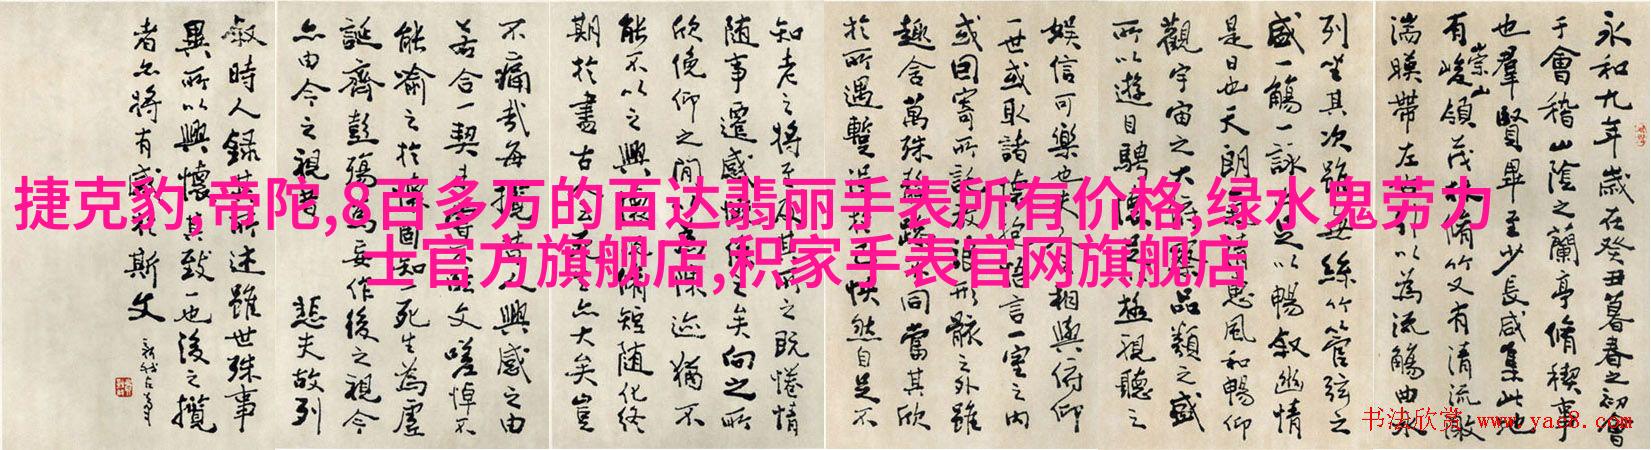 永和九年歲在癸丑暮春之初會
于會稽山陰之蘭亭脩稧事
也羣賢畢至少長咸集此地
有崇山峻領茂林脩竹又有清流激
湍暎帶左右引以為流觴曲水
列坐其次雖無絲竹管弦之
盛一觴一詠亦足以暢敘幽情
是日也天朗氣清惠風和暢仰
觀宇宙之大俯察品類之盛
所以遊目騁懷足以極視聽之
娛信可樂也夫人之相與俯仰
一世或取諸懷抱悟言一室之內
或因寄所託放浪形骸之外雖
趣舍萬殊靜躁不同當其欣
於所遇蹔得於己怏然自足不
知老之將至及其所之既惓情
隨事遷感慨係之矣向之所
欣俛仰之間以為陳迹猶不
能不以之興懷況脩短隨化終
期於盡古人云死生亦大矣豈
不痛哉每攬昔人興感之由
若合一契未嘗不臨文嗟悼不
能喻之於懷固知一死生為虛
誕齊彭殤為妄作後之視今
亦由今之視昔悲夫故列
敘時人錄其所述雖世殊事
異所以興懷其致一也後之攬
者亦將有感於斯文
捷克豹,帝陀,8百多万的百达翡丽手表所有价格,绿水鬼劳力
士官方旗舰店,积家手表官网旗舰店
书法欣赏 www.yac8.com